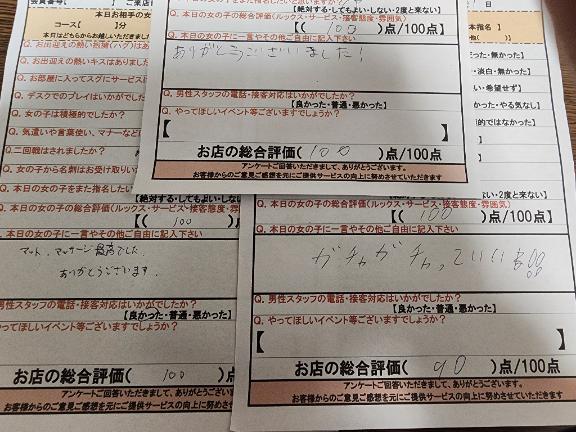 会員番号
コース【 】分
本日お相手の女
本日はどちらからお越しいただきまし
Q. お出迎えの熱い抱擁(ハグ)はあ
Q. お出迎えの熱いキスはありまし
Q. お部屋に入ってスグにサービス
Q. デスクでのプレイはいかがでした
Q. 女の子は積極的でしたか?
Q. 気遣いや言葉使い、マナーなど
Q. 二回戦はされましたか?
Q. 女の子から名刺はお受け取りい
Q. 本日の女の子をまた指名したい
【絶対する・してもよい・しない・
Q. 本日の女の子の総合評価(ルックス・サービス・接客態度・雰囲
【( 100 )点
Q. 本日の女の子に一言やその他ご自由に記入下さい
マット、マッサージ最高でした。
ありがとうございます。
男性スタッフの電話・接客対応はいかがでしたか?
【良かった・普通・悪かった】
やってほしいイベント等ございますでしょうか?
お店の総合評価( 100 )点
アンケートご回答いただきまして、ありがとうござい
お客様からのご意見ご感想を元にご提供サービスの向上に努めさせ
【絶対する・してもよい・しない・2度と来ない】
Q. 本日の女の子の総合評価(ルックス・サービス・接客態度・雰囲気)
【( 100 )点/100点
Q. 本日の女の子に一言やその他ご自由に記入下さい
ありがとうございました!
Q. 男性スタッフの電話・接客対応はいかがでしたか?
【良かった・普通・悪かった】
Q. やってほしいイベント等ございますでしょうか?
【
】
お店の総合評価( 100 )点/100点
アンケートご回答いただきまして、ありがとうございます。
お客様からのご意見ご感想を元にご提供サービスの向上に努めさせていただきます
本指名】
他】
った・無かった】
・淡白・無かった】
い・希望せず】
かった・やる気なし】
的ではなかった】
】
】
い・2度と来ない】
Q. 本日の女の子の総合評価(ルックス・サービス・接客態度・雰囲気)
【( 100 )点/100点】
Q. 本日の女の子に一言やその他ご自由に記入下さい
Q. 男性スタッフの電話・接客対応はいかがでしたか?
【良かった・普通・悪かった】
Q. やってほしいイベント等ございますでしょうか?
【
】
お店の総合評価( 90 )点/100点
アンケートご回答いただきまして、ありがとうございます。
お客様からのご意見ご感想を元にご提供サービスの向上に努めさせていただきます